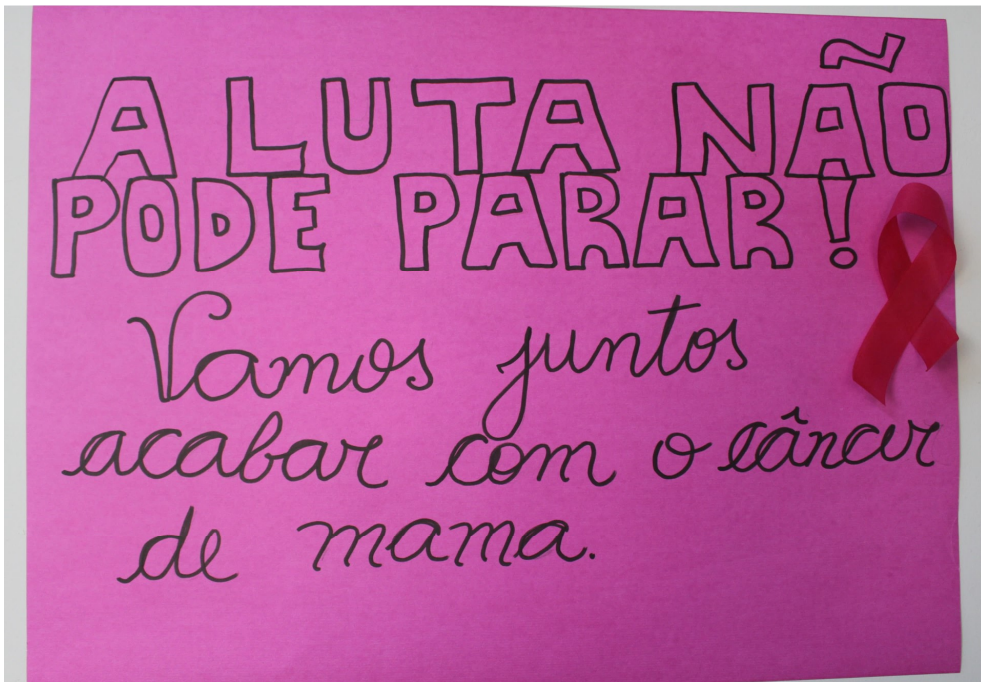 A LUTA NÃO
PODE PARAR!
Vamos juntos
acabar com o câncer
de mama.